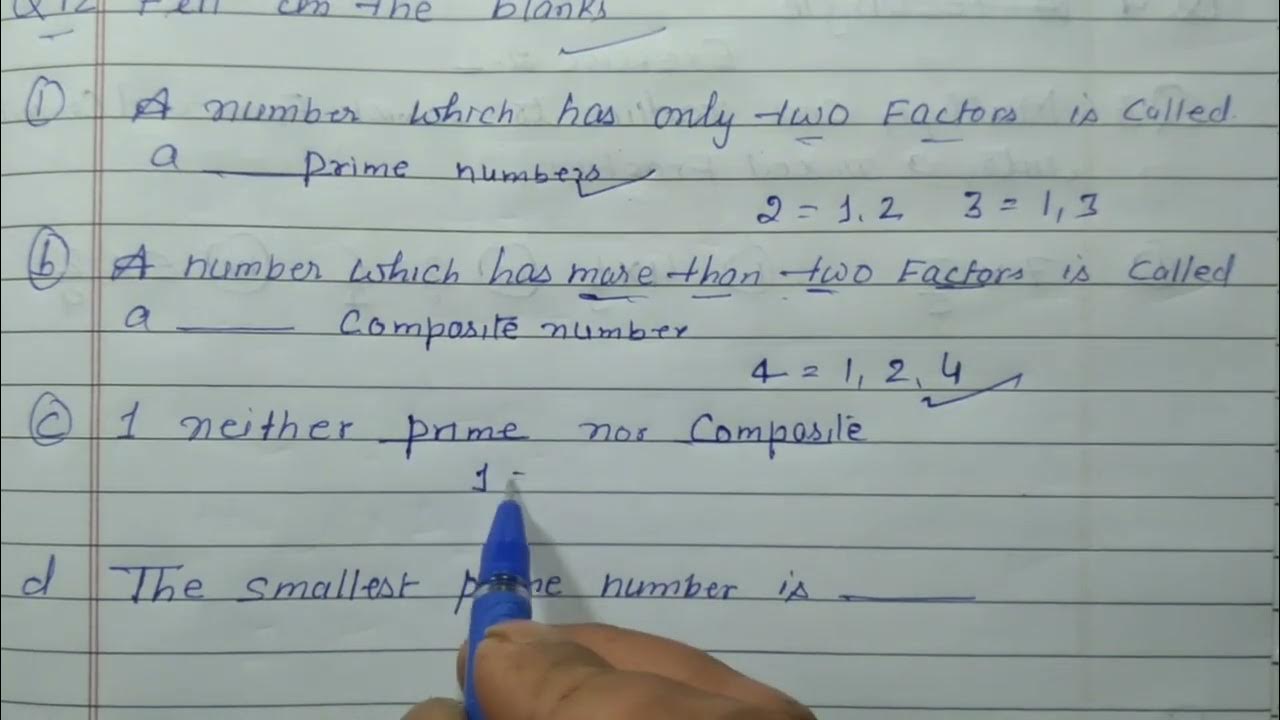 Q12 Fill in the blanks
① A number which has only two Factors is Called
a ____ prime numbers
2 = 1, 2 3 = 1, 3
ⓑ A number which has more than two Factors is Called
a ____ Composite number
4 = 1, 2, 4
ⓒ 1 neither prime nor Composite
1 =
d The smallest prime number is ____